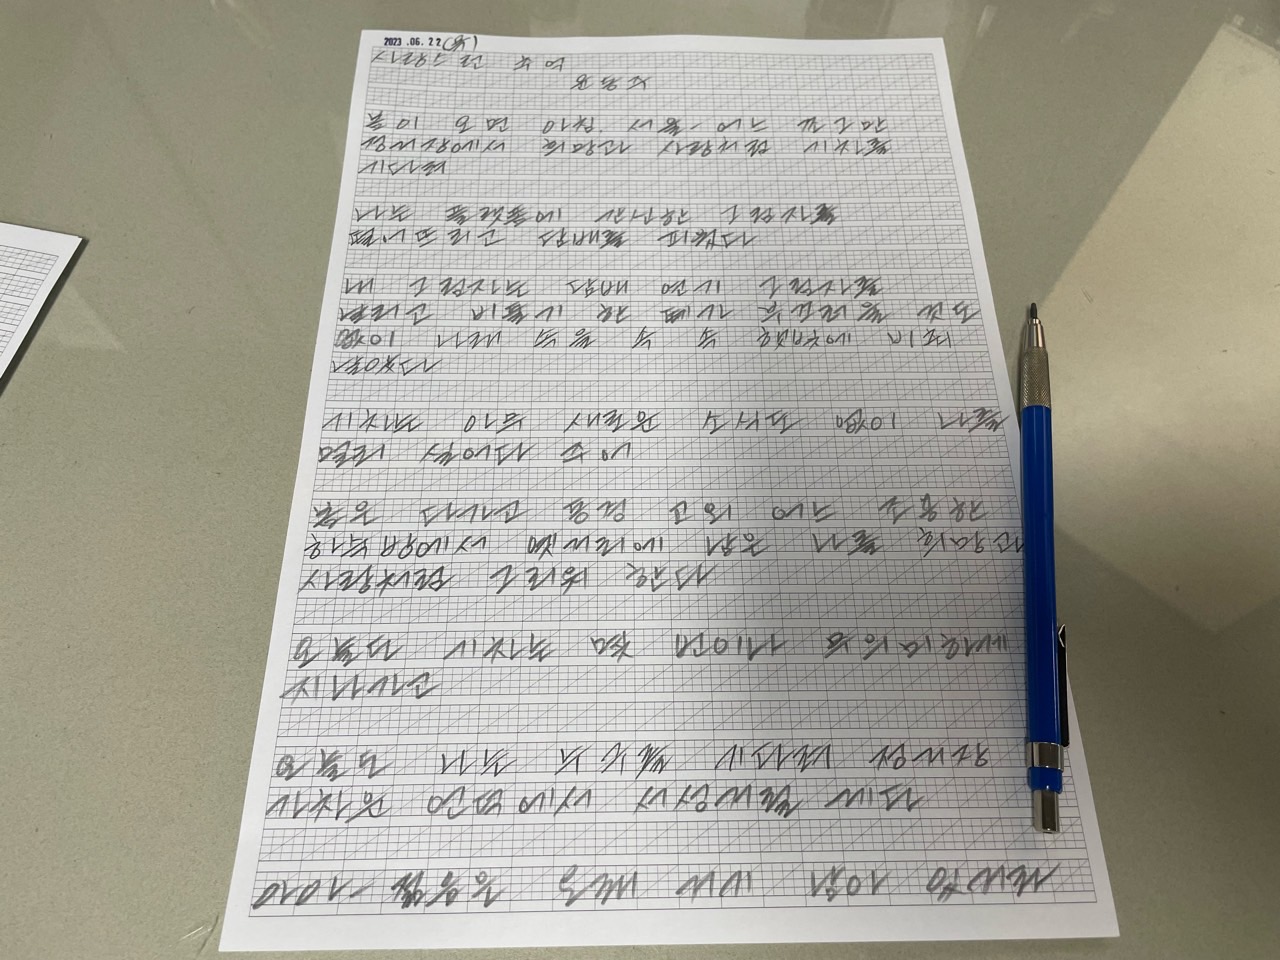 2023.06.22(목)
사랑스런 추억
윤동주
봄이 오던 아침. 서울. 어느 쪼그만
정거장에서 희망과 사랑처럼 기차를
기다려
나는 플랫폼에 간신한 그림자를
떨어뜨리고 담배를 피웠다
내 그림자는 담배 연기 그림자를
날리고 비둘기 한 떼가 부끄러울 것도
없이 나래 속을 속 속 햇빛에 비춰
날았다
기차는 아무 새로운 소식도 없이 나를
멀리 실어다 주어
봄은 다 가고 동경 교외 어느 조용한
하숙방에서 옛거리에 남은 나를 희망과
사랑처럼 그리워 한다
오늘도 기차는 몇 번이나 무의미하게
지나가고
오늘도 나는 누구를 기다려 정거장
가차운 언덕에서 서성거릴 게다
아아- 젊음은 오래 거기 남아 있거라